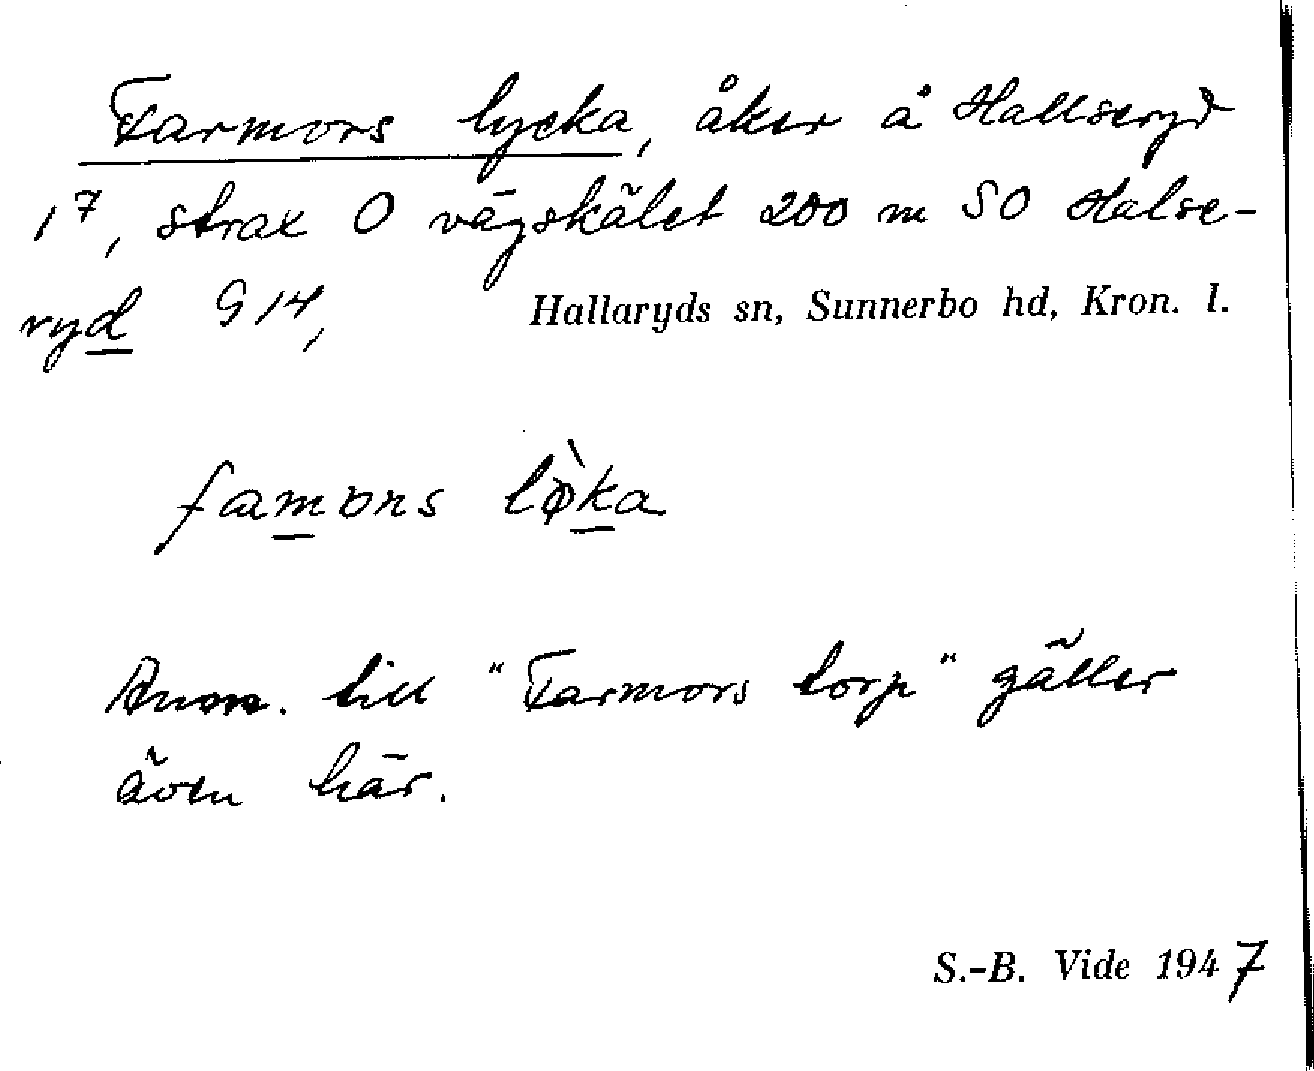 Farmors lycka, åker å Hallseryd
1⁷, strax O vägskälet 200 m SO Halse-
ryd G 14, Hallaryds sn, Sunnerbo hd, Kron. l.
famors lø̀ka
Anm. till "Farmors torp" gäller
även här.
S.-B. Vide 1947